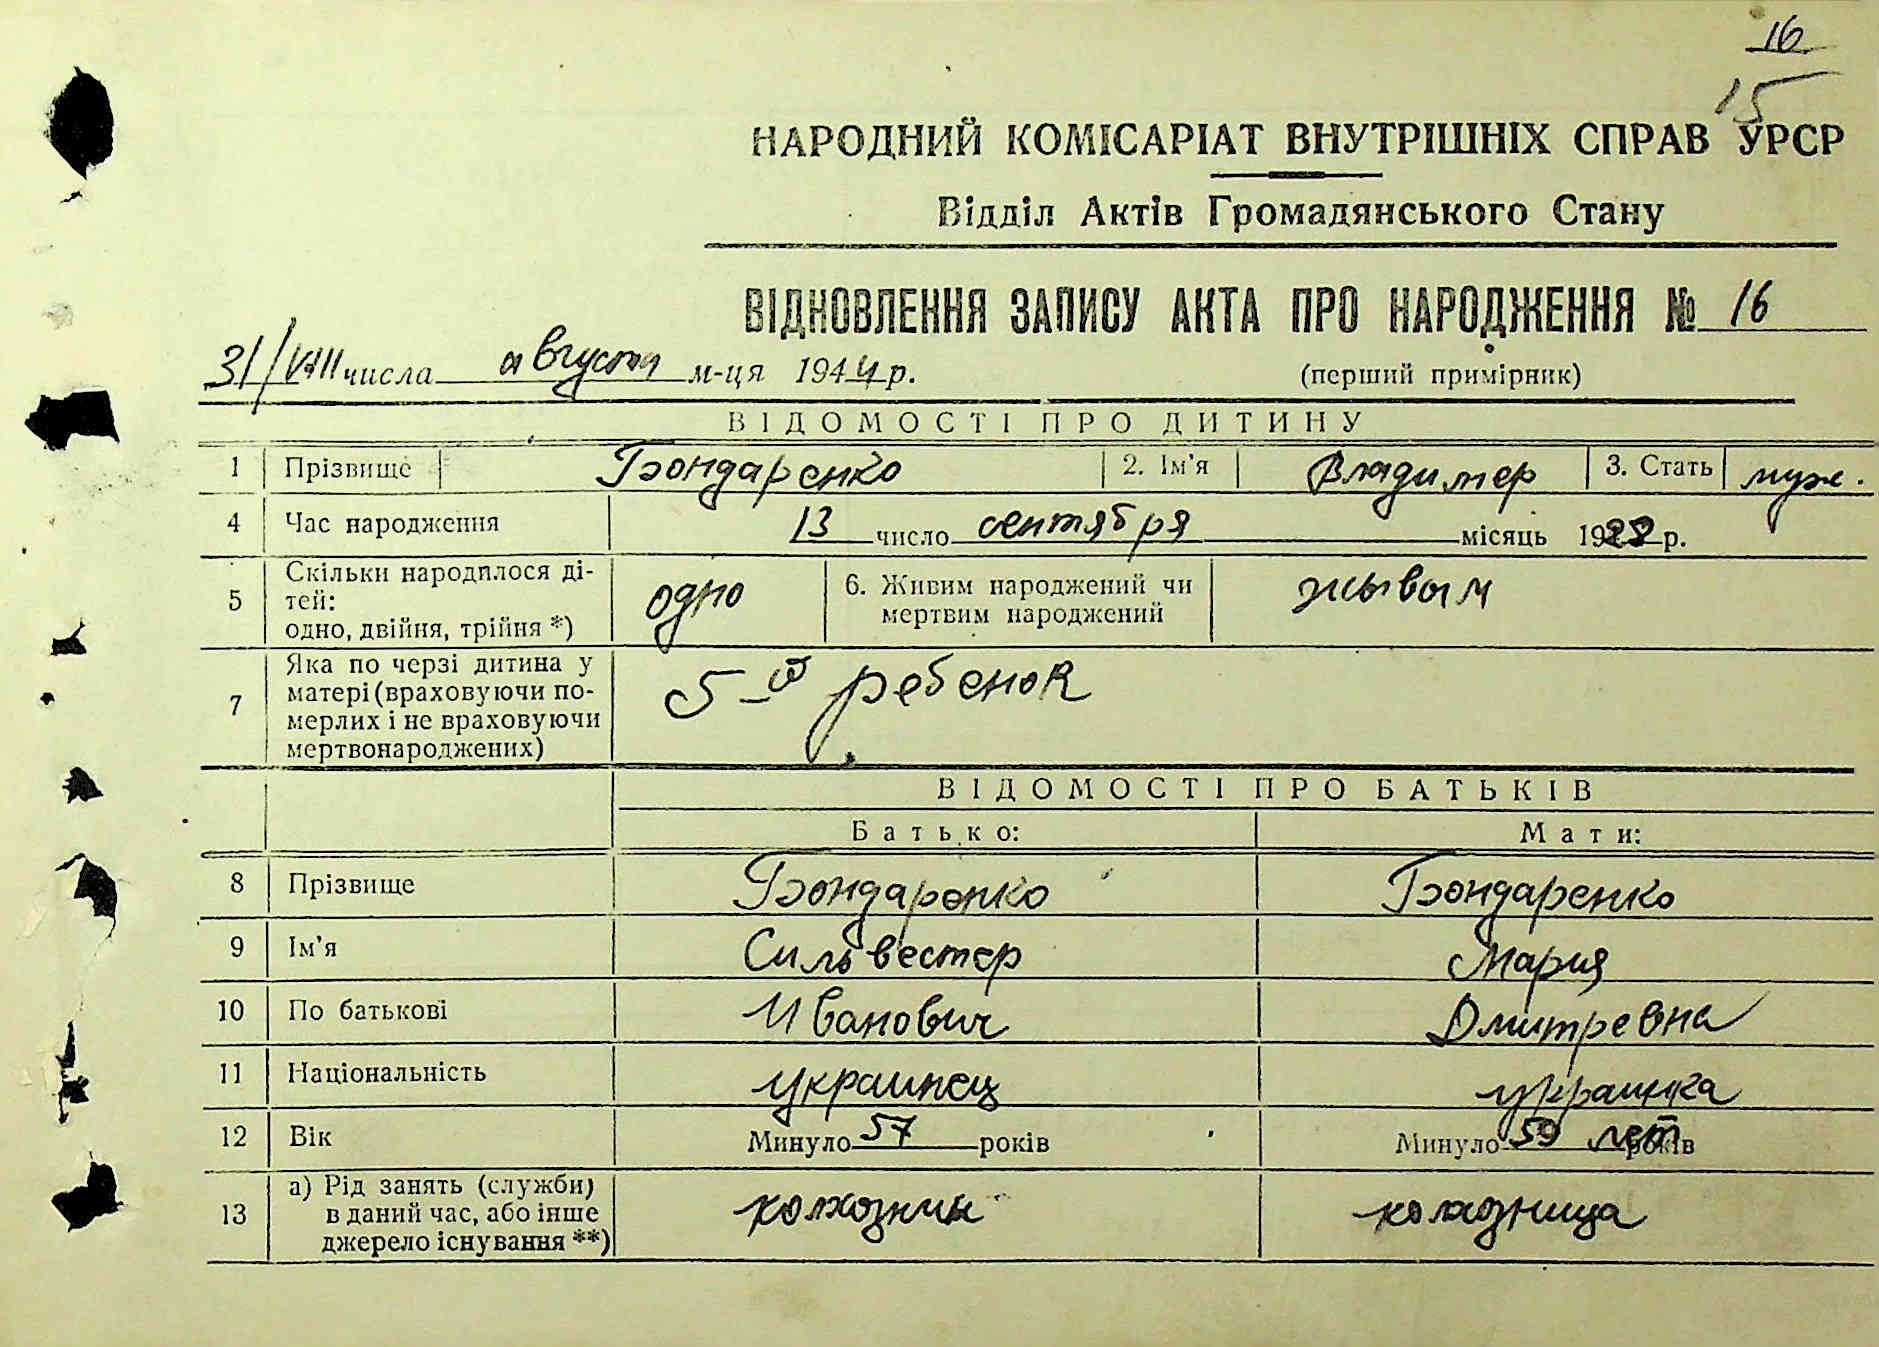 16
15
НАРОДНИЙ КОМІСАРІАТ ВНУТРІШНІХ СПРАВ УРСР
Відділ Актів Громадянського Стану
ВІДНОВЛЕННЯ ЗАПИСУ АКТА ПРО НАРОДЖЕННЯ № 16
31/VIII числа августа м-ця 1944 р.
(перший примірник)
ВІДОМОСТІ ПРО ДИТИНУ
1 Прізвище Бондаренко 2. Ім'я Владимер 3. Стать муж.
4 Час народження 13 число сентября місяць р.
5 Скільки народилося ді-
тей:
одно, двійня, трійня *) одно 6. Живим народжений чи
мертвим народжений жывым
7 Яка по черзі дитина у
матері (враховуючи по-
мерлих і не враховуючи
мертвонароджених) 5-й ребенок
ВІДОМОСТІ ПРО БАТЬКІВ
Батько: Мати:
8 Прізвище Бондаренко Бондаренко
9 Ім'я Сильвестер Мария
10 По батькові Иванович Дмитревна
11 Національність украинец украинка
12 Вік Минуло 57 років Минуло 59 лет років
13 а) Рід занять (служби)
в даний час, або інше
джерело існування **) колхозник колхозница